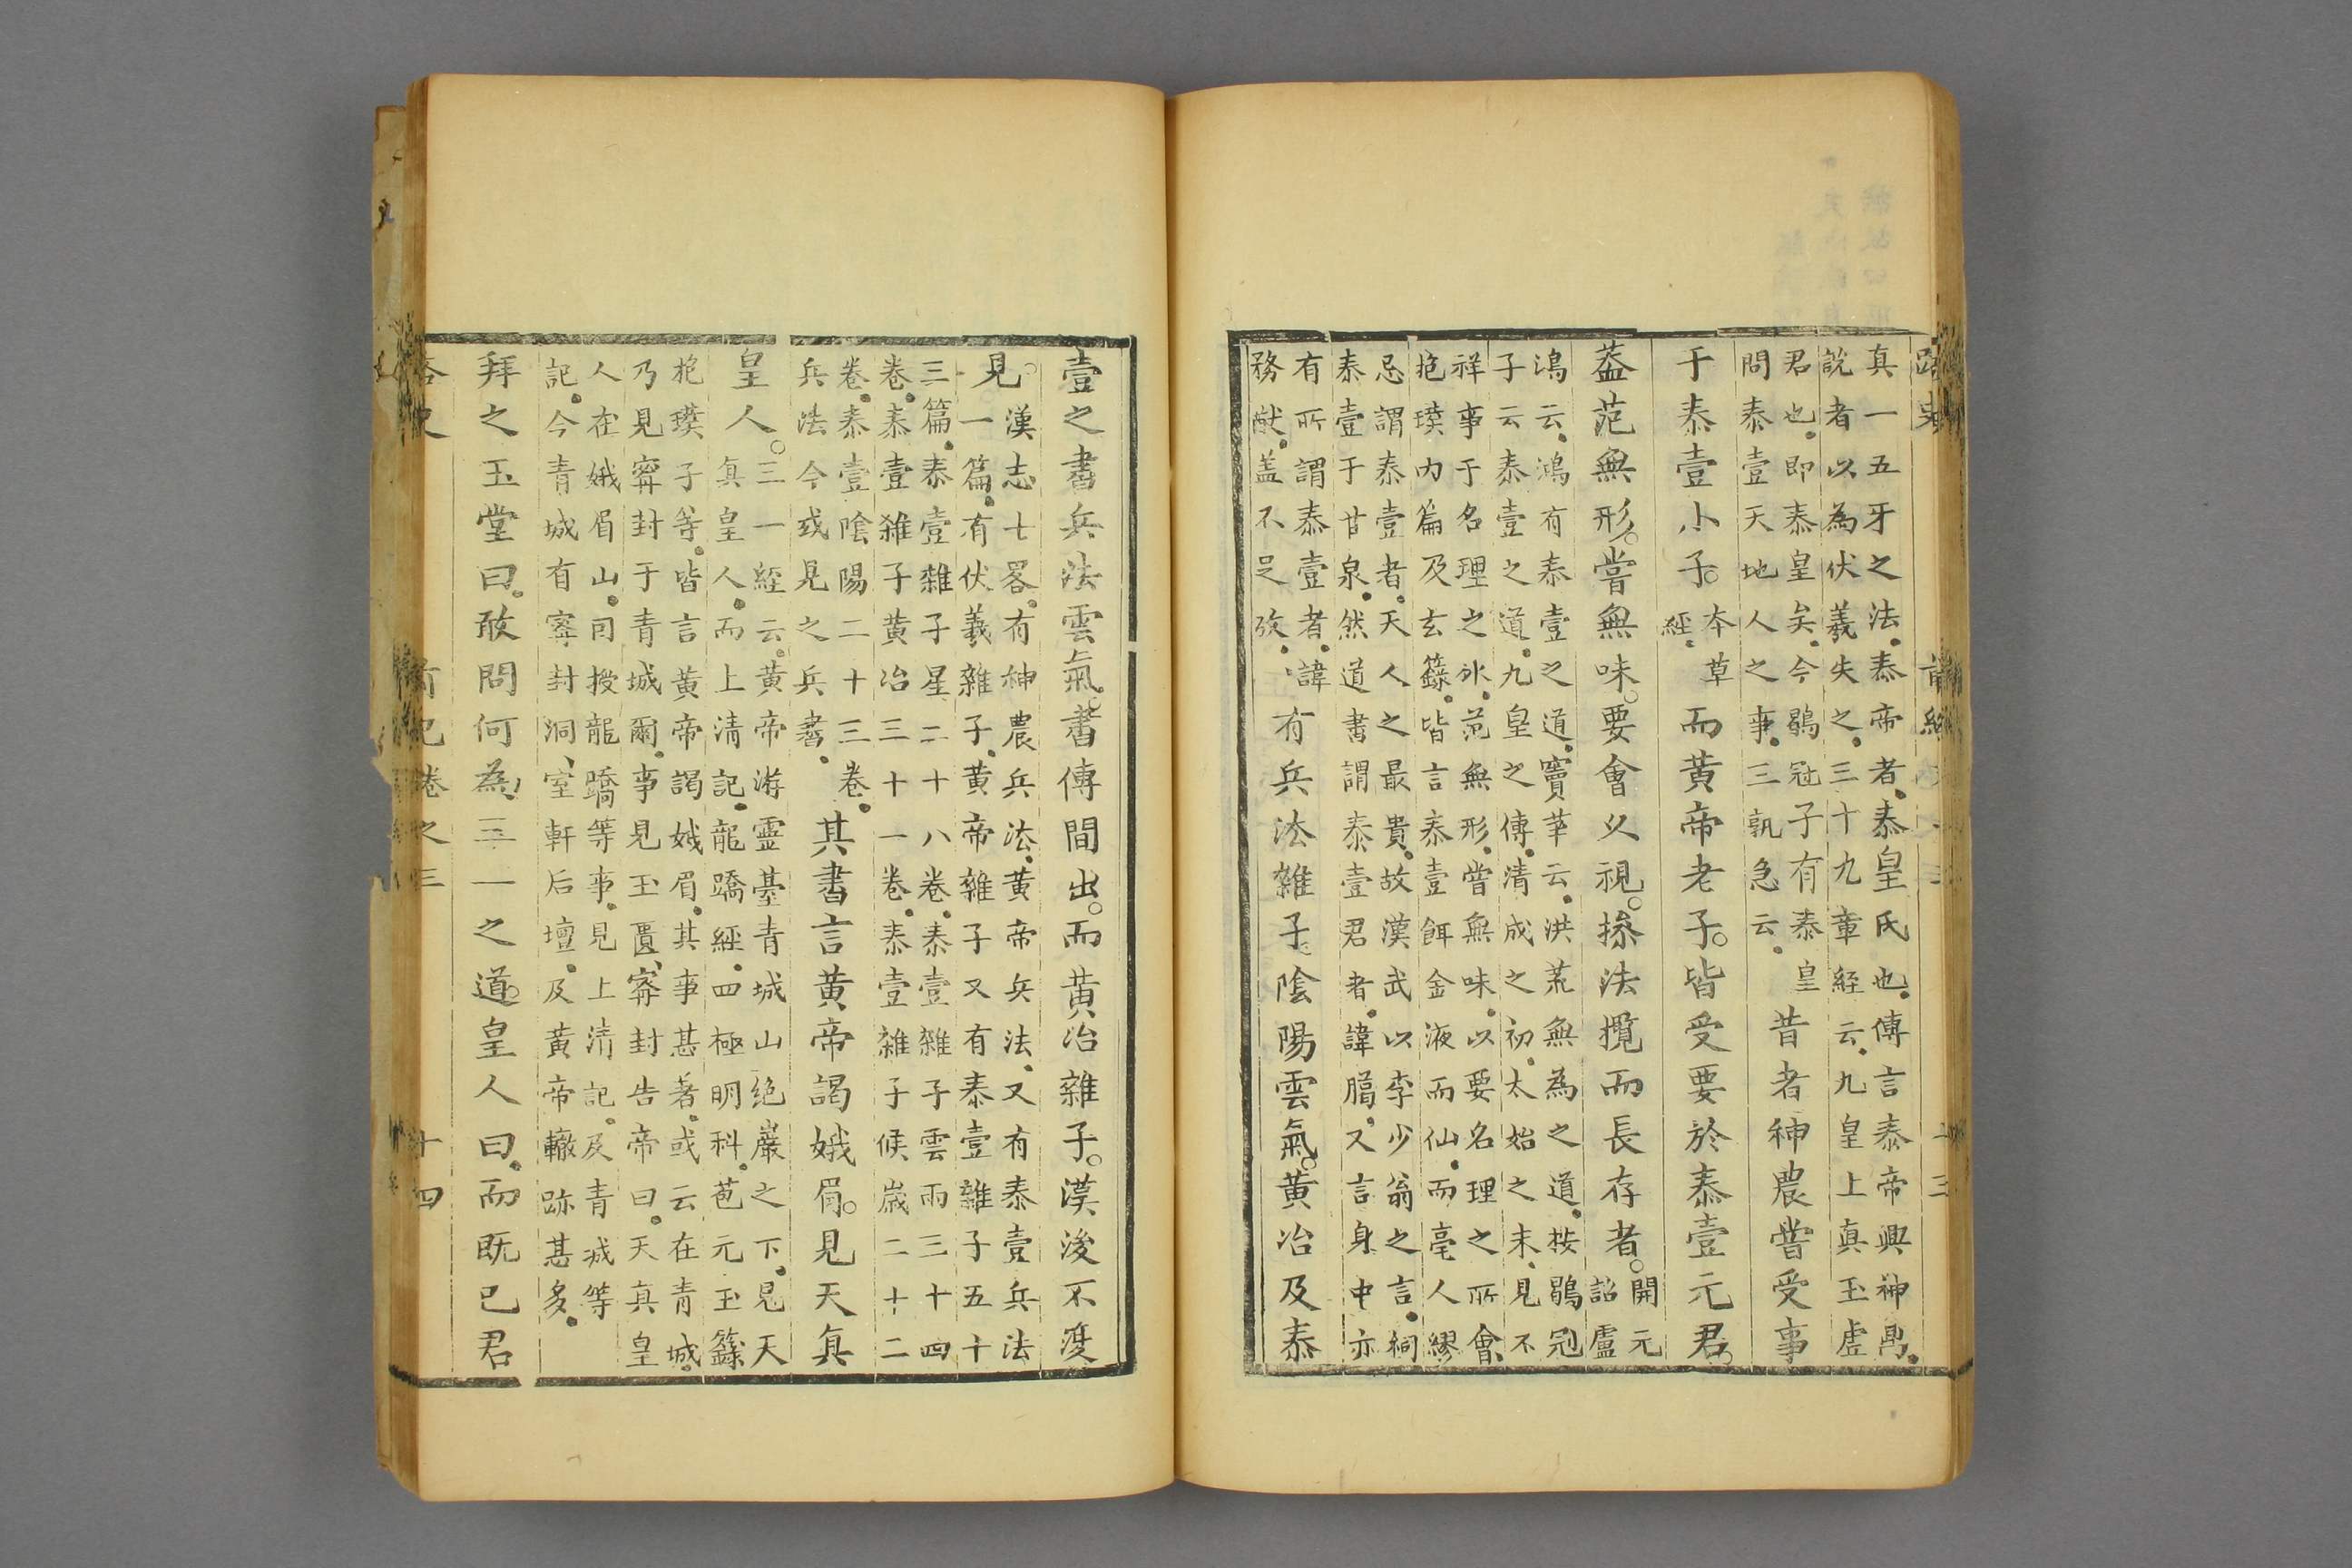 路史 前紀 十三
真一五牙之法泰帝者泰皇氏也傅言泰帝興神鼎
說者以為伏羲失之三十九章經云九皇上真玉虛
君也即泰皇矣今鶡冠子有泰皇
問泰壹天地人之事三孰急云 昔者神農嘗受事
于泰壹小子 本草經 而黃帝老子皆受要於泰壹元君
葢范無形嘗無味要會乂視摻法攬而長存者 開元詔盧
鴻云鴻有泰壹之道竇苹云洪荒無為之道按鶡冠
子云泰壹之道九皇之傅清成之初太始之末見不
祥事于名理之外范無形嘗無味以要名理之所會
抱璞内篇及玄籙皆言泰壹餌金液而仙而亳人繆
忌謂泰壹者天人之最貴故漢武以李少翁之言祠
泰壹于甘泉然道書謂泰壹君者諱腷又言身中亦
有所謂泰壹者諱
務猷盖不足攷 有兵法雜子陰陽雲氣黃冶及泰
壹之書兵法雲氣書傳間出而黃冶雜子漢後不復
見 漢志七畧有神農兵法黃帝兵法又有泰壹兵法
一篇有伏羲雜子黃帝雜子又有泰壹雜子五十
三篇泰壹雜子星二十八卷泰壹雜子雲雨三十四
卷泰壹雜子黃冶三十一卷泰壹雜子候歲二十二
卷泰壹陰陽二十三卷
兵法今或見之兵書 其書言黃帝謁峨眉見天真
皇人 三一經云黃帝游靈臺青城山绝巖之下見天
真皇人而上清記龍蹻經四極明科苞元玉籙
抱璞子等皆言黃帝謁峨眉其事甚著或云在青城
乃見寗封于青城爾事見玉匱寗封告帝曰天真皇
人在峨眉山可授龍蹻等事見上清記及青城等
記今青城有寗封洞室軒后壇及黃帝轍跡甚多
拜之玉堂曰敢問何為三一之道皇人曰而既已君
路史 前紀卷之三 十四